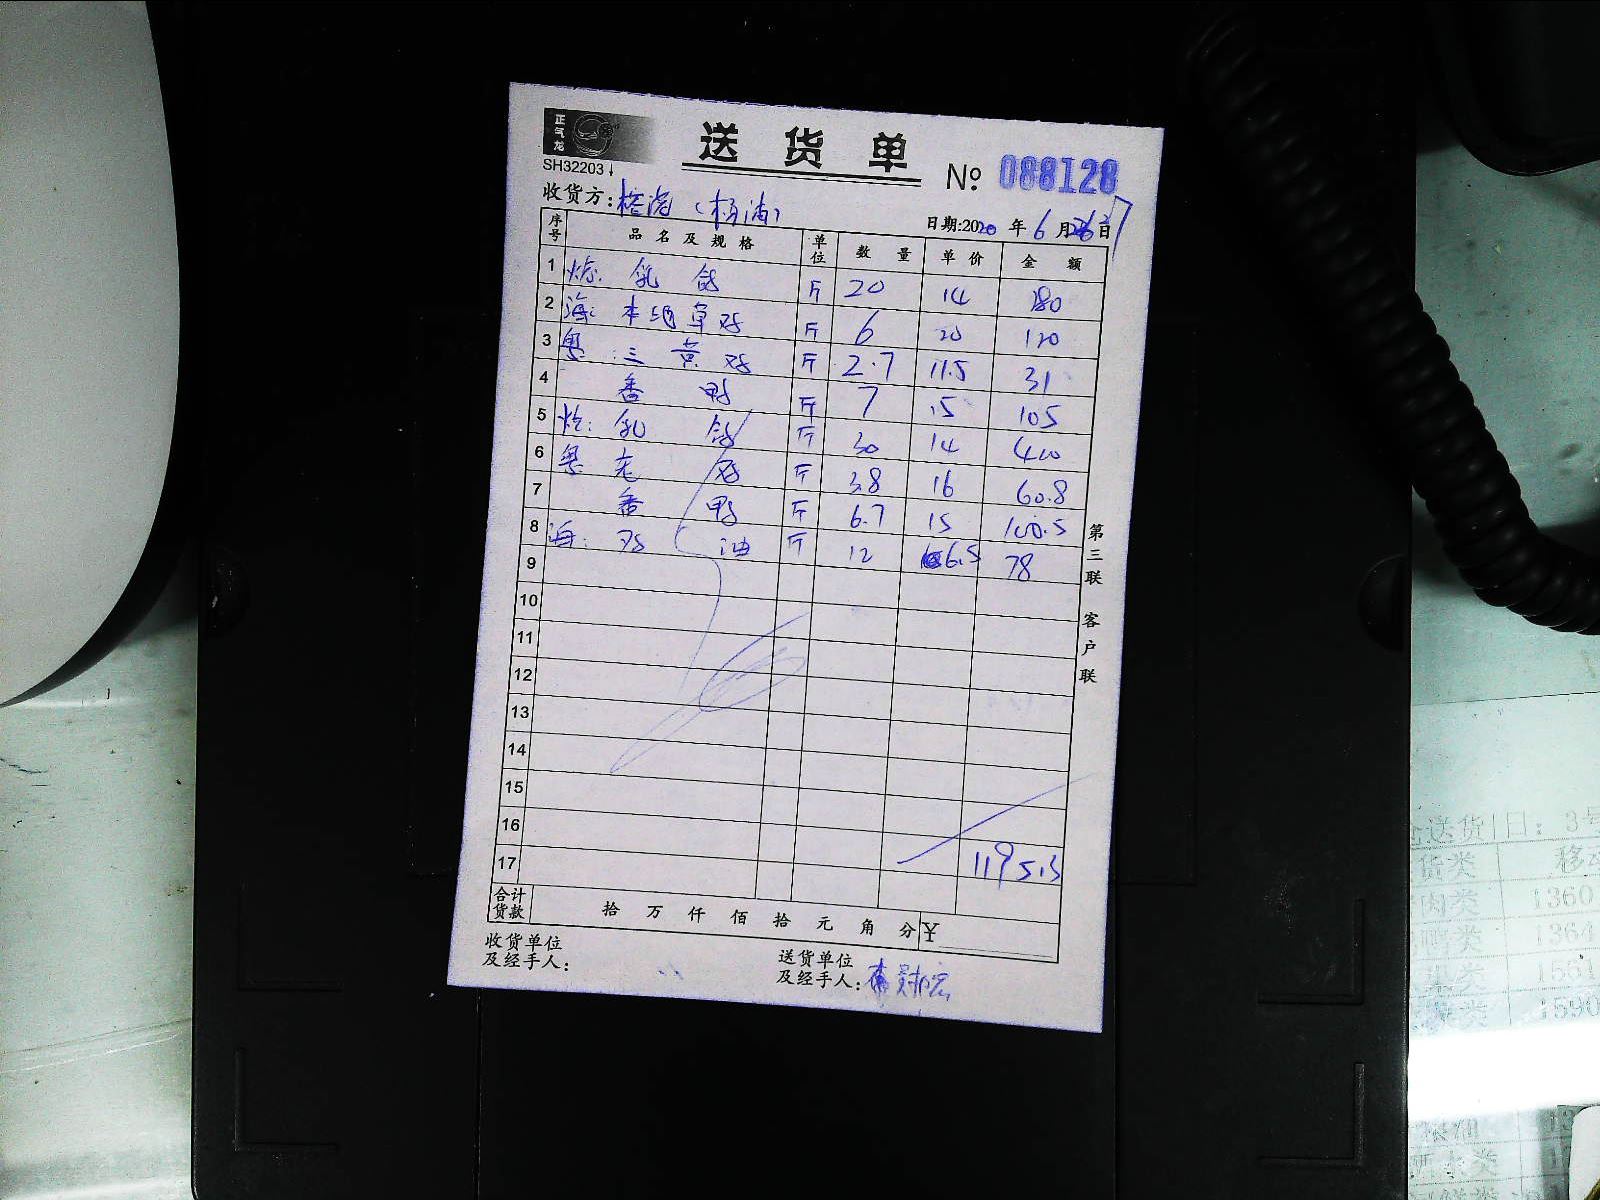 正气龙
送货单
SH32203
№ 088128
收货方:
日期:2020年6月27日
序号 品名及规格 单位 数量 单价 金额
1 烧: 乳鸽 斤 20 14 280
2 海: 本地草鸡 斤 6 20 120
3 粤: 三黄鸡 斤 2.7 11.5 31
4 番鸭 斤 7 15 105
5 烧: 乳鸽 斤 30 14 420
6 粤 老鸡 斤 3.8 16 60.8
7 番鸭 斤 6.7 15 100.5
8 海: 鸡油 斤 12 6.5 78
9
10
11
12
13
14
15
16
17 1195.3
合计货款 拾万仟佰拾元角分 ¥
收货单位及经手人:
送货单位及经手人:
第三联 客户联
送货 日: 3号
货类 移
肉类 1360
鸭类 1364
果类 1561
类 1590